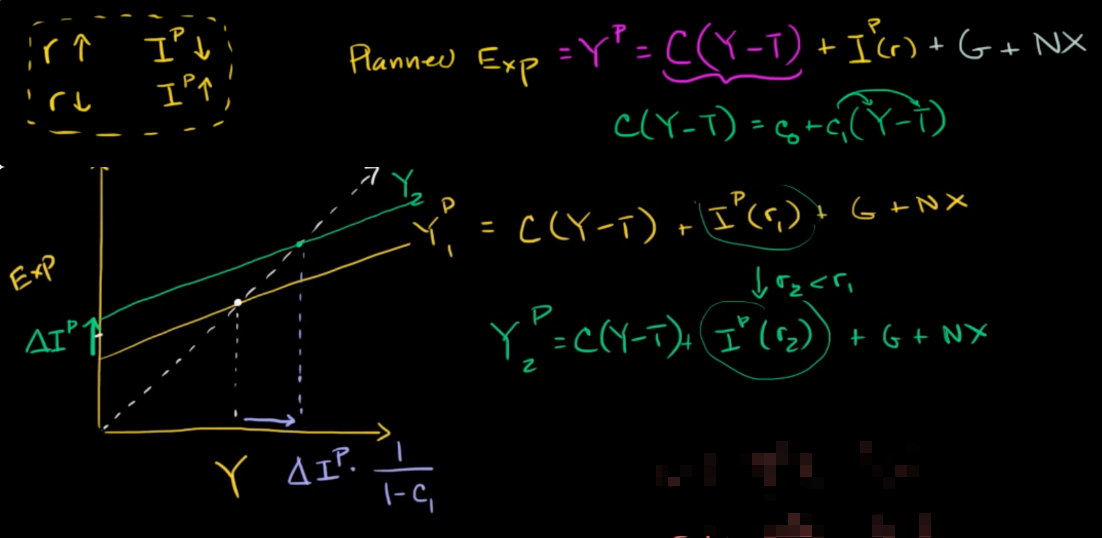 r ↑ I^P ↓
r ↓ I^P ↑
Planned Exp = Y^P = C(Y-T) + I^P(r) + G + NX
C(Y-T) = c₀ + c₁(Y-T)
Y₂
Y₁^P = C(Y-T) + I^P(r₁) + G + NX
Exp
↓ r₂ < r₁
ΔI^P ↑
Y₂^P = C(Y-T) + I^P(r₂) + G + NX
Y ΔI^P · 1/(1-c₁)